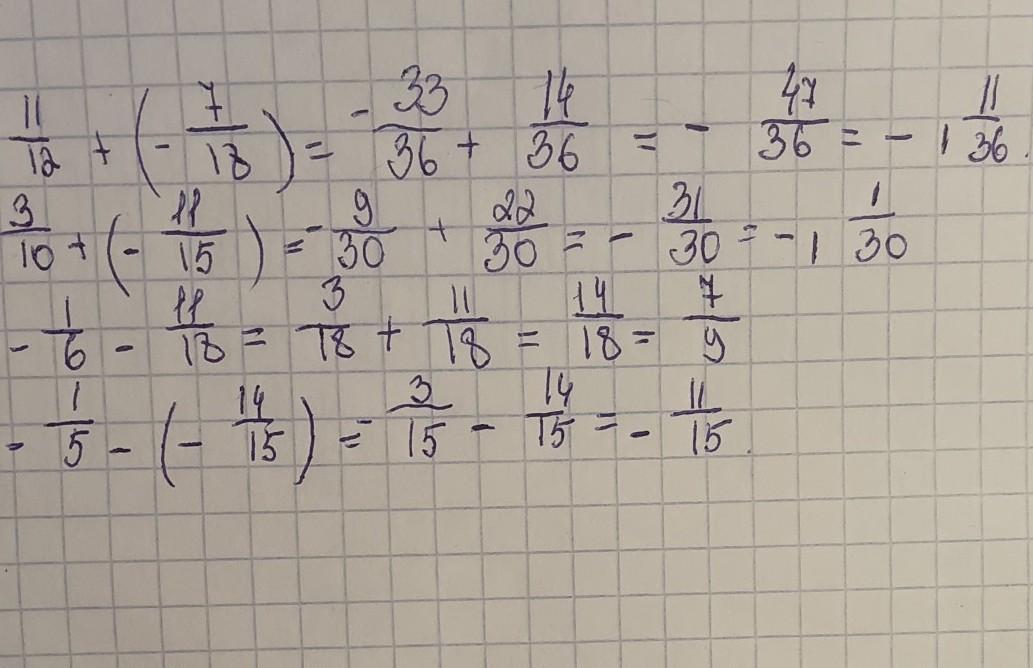 11/12 + (- 7/18) = - 33/36 + 14/36 = - 47/36 = - 1 11/36.
3/10 + (- 11/15) = - 9/30 + 22/30 = - 31/30 = - 1 1/30
- 1/6 - 11/18 = 3/18 + 11/18 = 14/18 = 7/9
- 1/5 - (- 14/15) = - 3/15 - 14/15 = - 11/15.